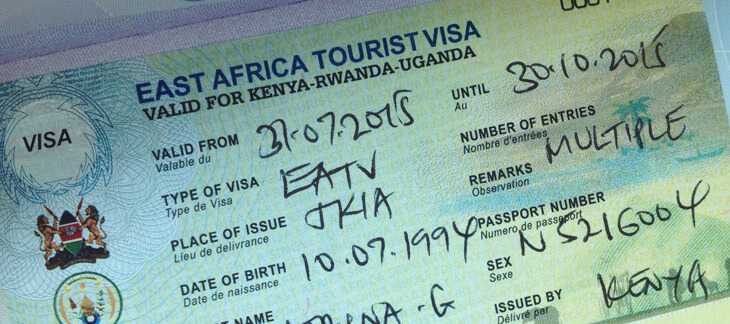 EAST AFRICA TOURIST VISA
VALID FOR KENYA-RWANDA-UGANDA
VISA
VALID FROM 31.07.2015 UNTIL 30.10.2015
Valable du Au
TYPE OF VISA EATV NUMBER OF ENTRIES MULTIPLE
Type de Visa Nombre d'entrées
PLACE OF ISSUE JKIA REMARKS
Lieu de delivrance Observation
DATE OF BIRTH 10.07.1994 PASSPORT NUMBER N5216004
Date de naissance Numero de passeport
SEX
Sexe
NAME -G ISSUED BY KENYA
Délivré par